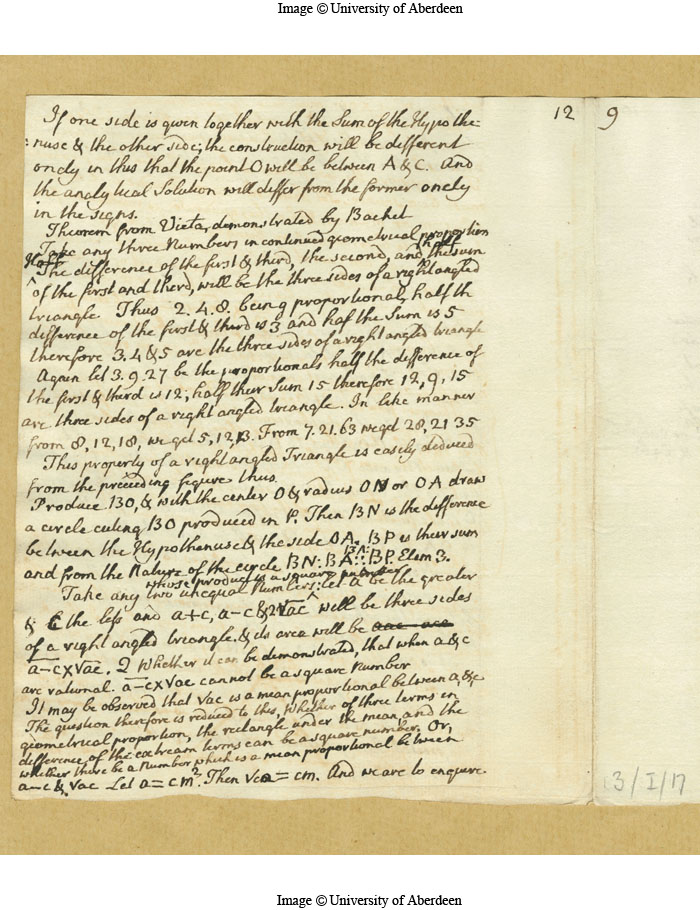 Image © University of Aberdeen
12 9
If one side is given together with the Sum of the Hypothe:
:nuse & the other side; the construction will be different
onely in this that the point O will be between A & C. And
the analytical Solution will differ from the former onely
in the signs.
Theorem from Vieta, demonstrated by Bachet
Take any three Numbers in continued geometrical proportion
Half The difference of the first & third, the second, and half the sum
of the first and third, will be the three sides of a right angled
triangle Thus 2. 4. 8. being proportional, half th
difference of the first & third is 3 and half the Sum is 5
therefore 3, 4 & 5 are the three sides of a right angled triangle
Again let 3. 9. 27 be the proportionals half the difference of
the first & third is 12; half their Sum 15 therefore 12, 9, 15
are three sides of a right angled triangle. In like manner
from 8, 12, 18, we get 5, 12, 13. From 7. 21. 63 we get 28, 21 35
This property of a right angled Triangle is easily deduced
from the preceeding figure thus.
Produce BO, & with the center O & radius ON or OA draw
a circle cuting BO produced in P. Then BN is the difference
between the Hypothenuse & the side OA. BP is their sum
and from the Nature of the circle BN:BA::BA:BP. Elem 3.
Take any two unequal Numbers whose product is a square number: let a be the greater
& c the less and a+c, a-c & 2√ac will be three sides
of a right angled triangle. & its area will be
a-c × √ac. Q Whether it can be demonstrated, that when a & c
are rational. a-c × √ac cannot be a square Number
It may be observed that √ac is a mean proportional between a & c
The question therefore is reduced to this, Whether of three terms in
geometrical proportion, the rectangle under the mean and the
difference of the extream terms can be a square number. Or,
whether there be a Number which is a mean proportional between
a-c & √ac Let a = cm². Then √ca = cm. And we are to enquire.
3/I/17
Image © University of Aberdeen